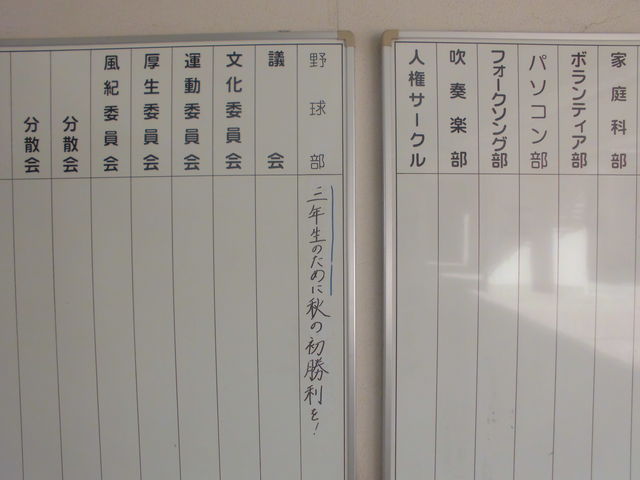 家庭科部
ボランティア部
パソコン部
フォークソング部
吹奏楽部
人権サークル
野球部
三年生のために秋の初勝利を!
議会
文化委員会
運動委員会
厚生委員会
風紀委員会
分散会
分散会